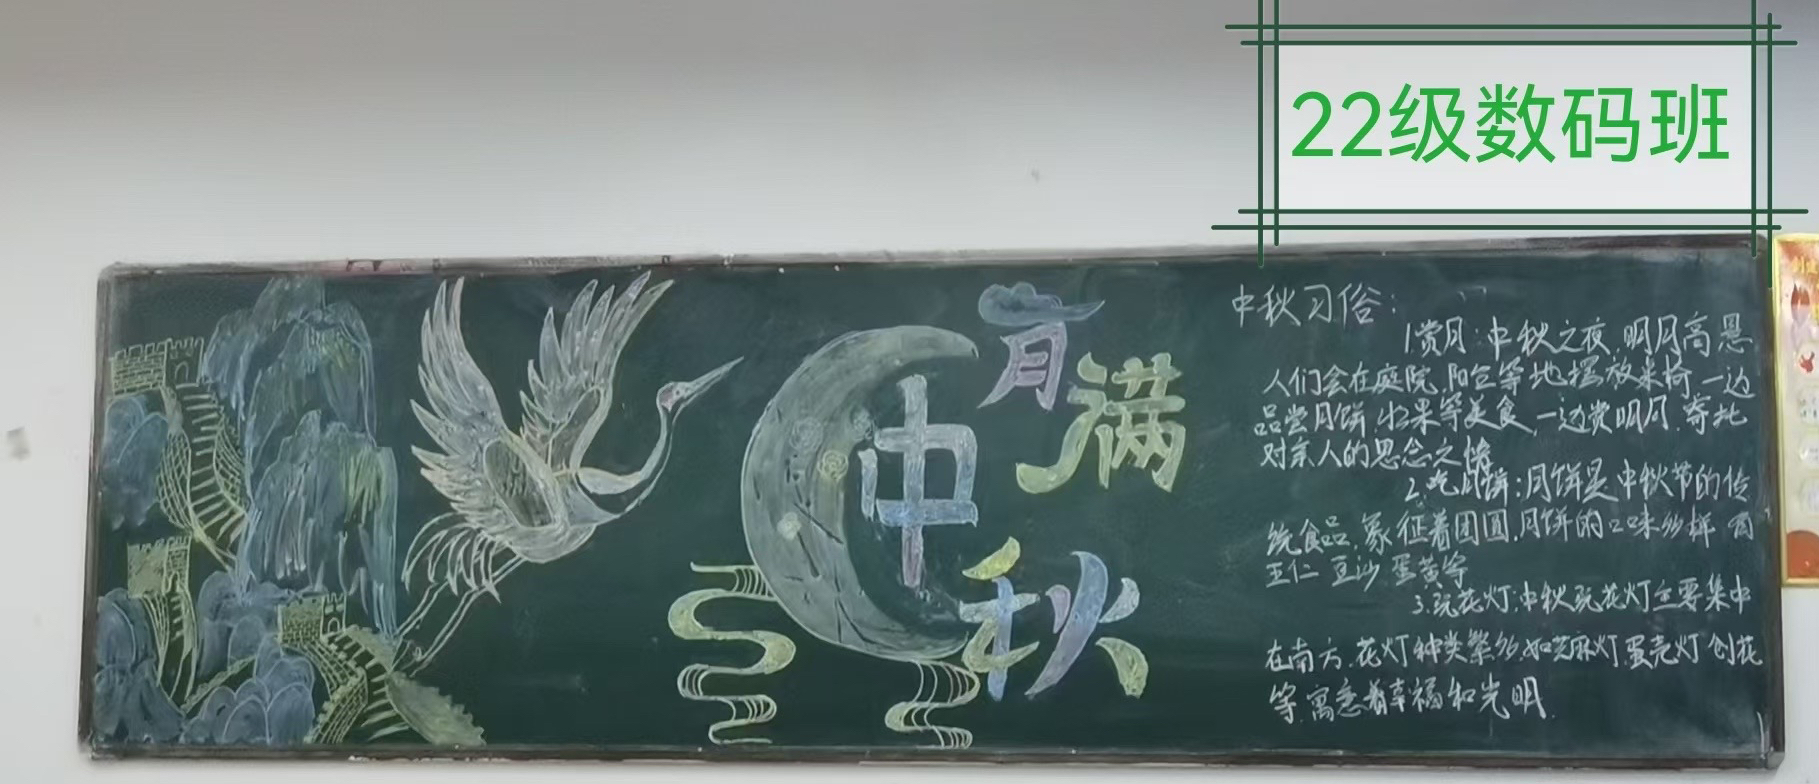 22级数码班
月满
中秋
中秋习俗：
1.赏月：中秋之夜，明月高悬
人们会在庭院、阳台等地摆放桌椅，一边
品尝月饼、水果等美食，一边赏明月，寄托
对亲人的思念之情
2.吃月饼：月饼是中秋节的传
统食品，象征着团圆，月饼的口味多样，有
五仁、豆沙、蛋黄等
3.玩花灯：中秋玩花灯主要集中
在南方，花灯种类繁多，如芝麻灯、蛋壳灯、刨花
等，寓意着幸福和光明.